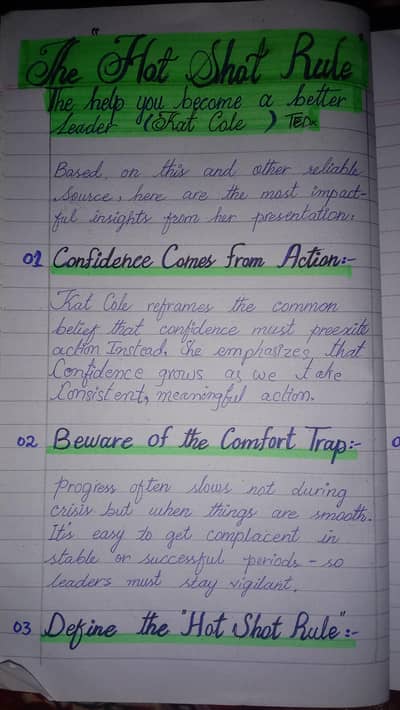 The "Hot Shot Rule"
The help you become a better
Leader (Kat Cole) TEDx
Based on this and other reliable
Source, here are the most impact-
ful insights from her presentation.
01 Confidence Comes from Action:-
Kat Cole reframes the common
belief that confidence must preexits
action Instead, She emphasizes that
Confidence grows as we take
Consistent, meaningful action.
02 Beware of the Comfort Trap:-
Progress often slows not during
crisis but when things are smooth.
It's easy to get complacent in
stable or successful periods - so
leaders must stay vigilant.
03 Define the "Hot Shot Rule":-